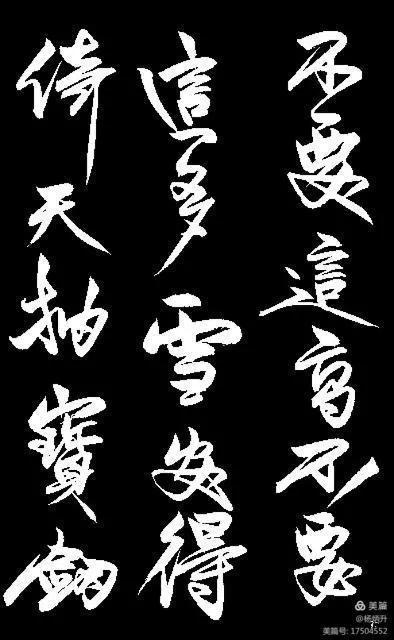 不要這高不要
這多雪安得
倚天抽寶劍
美篇
@杨炳升
美篇号: 17504552